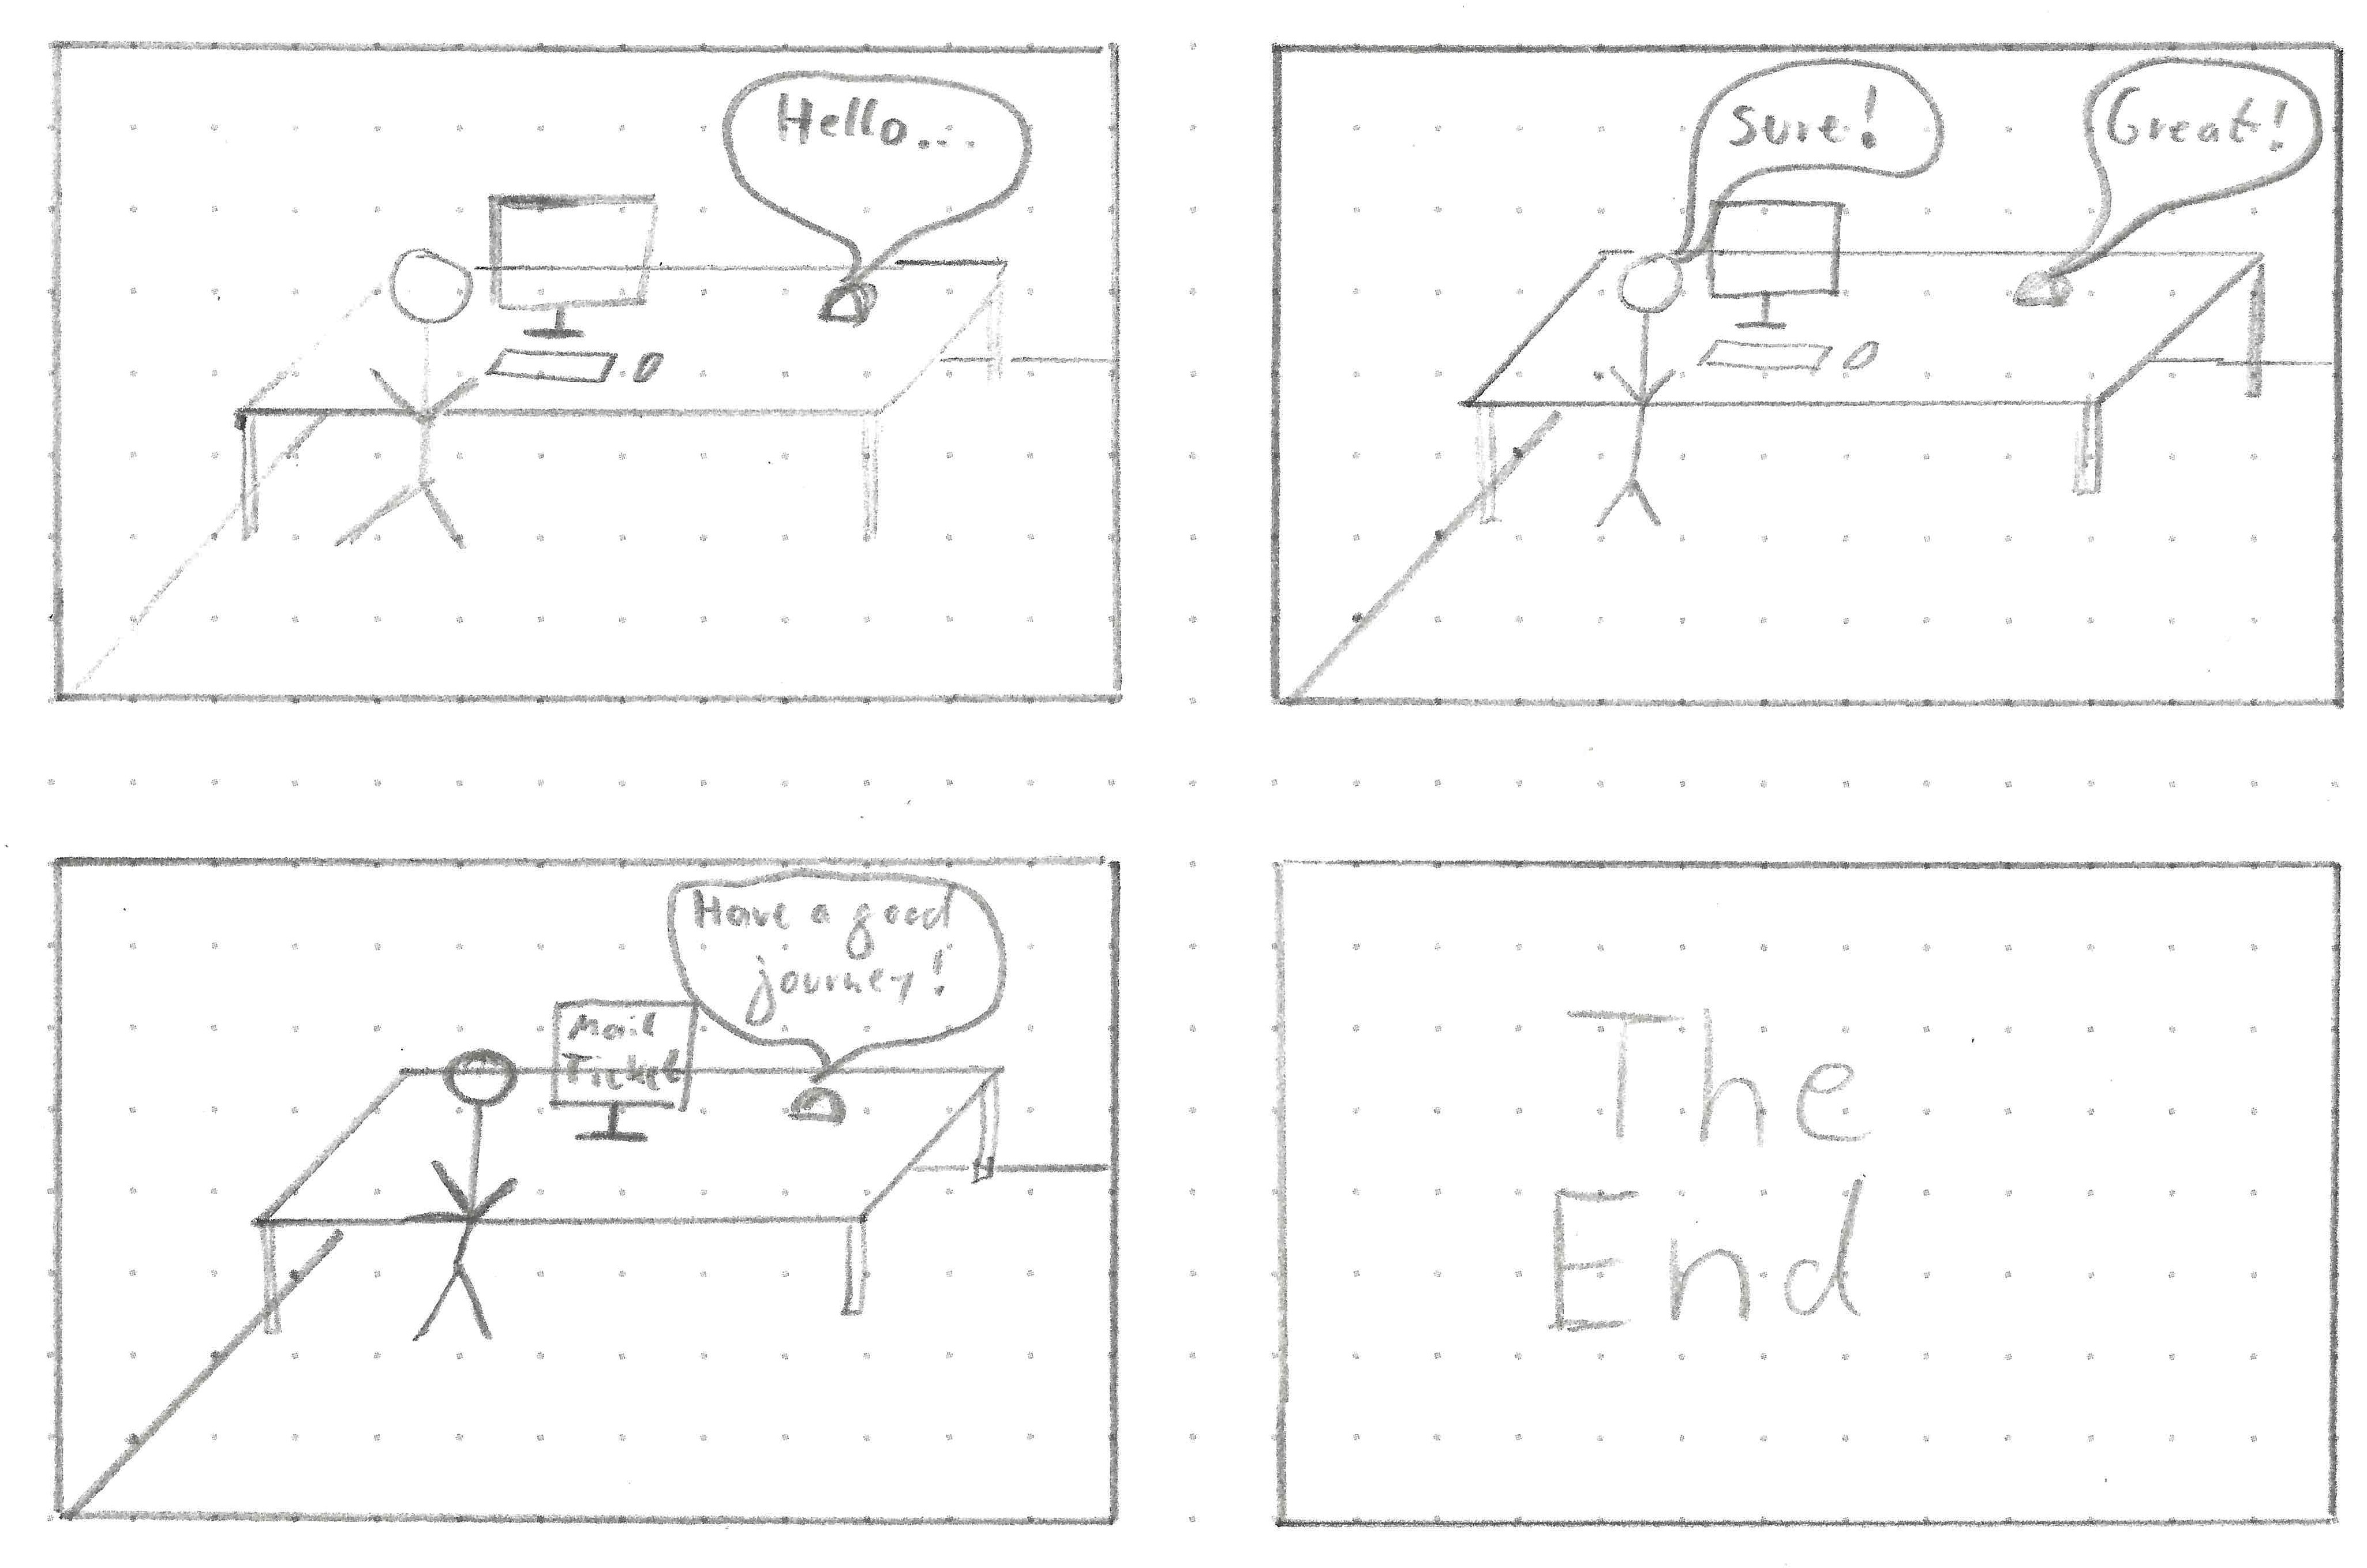 Hello...
Sure!
Great!
Have a good
journey!
Mail
Ticket
The
End